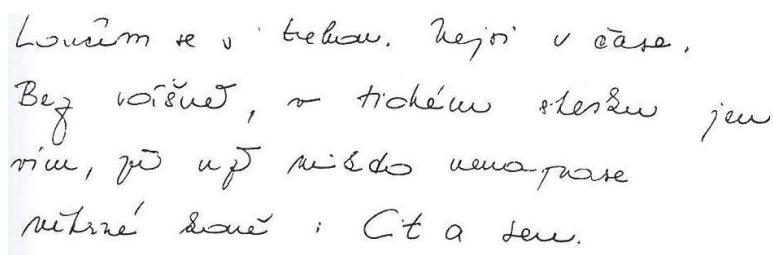 Loučím se s tebou. Nejsi v čase.
Bez vášně, v tichém stesku jen
vím, že už nikdo nenapase
větrné koně: Cit a sen.